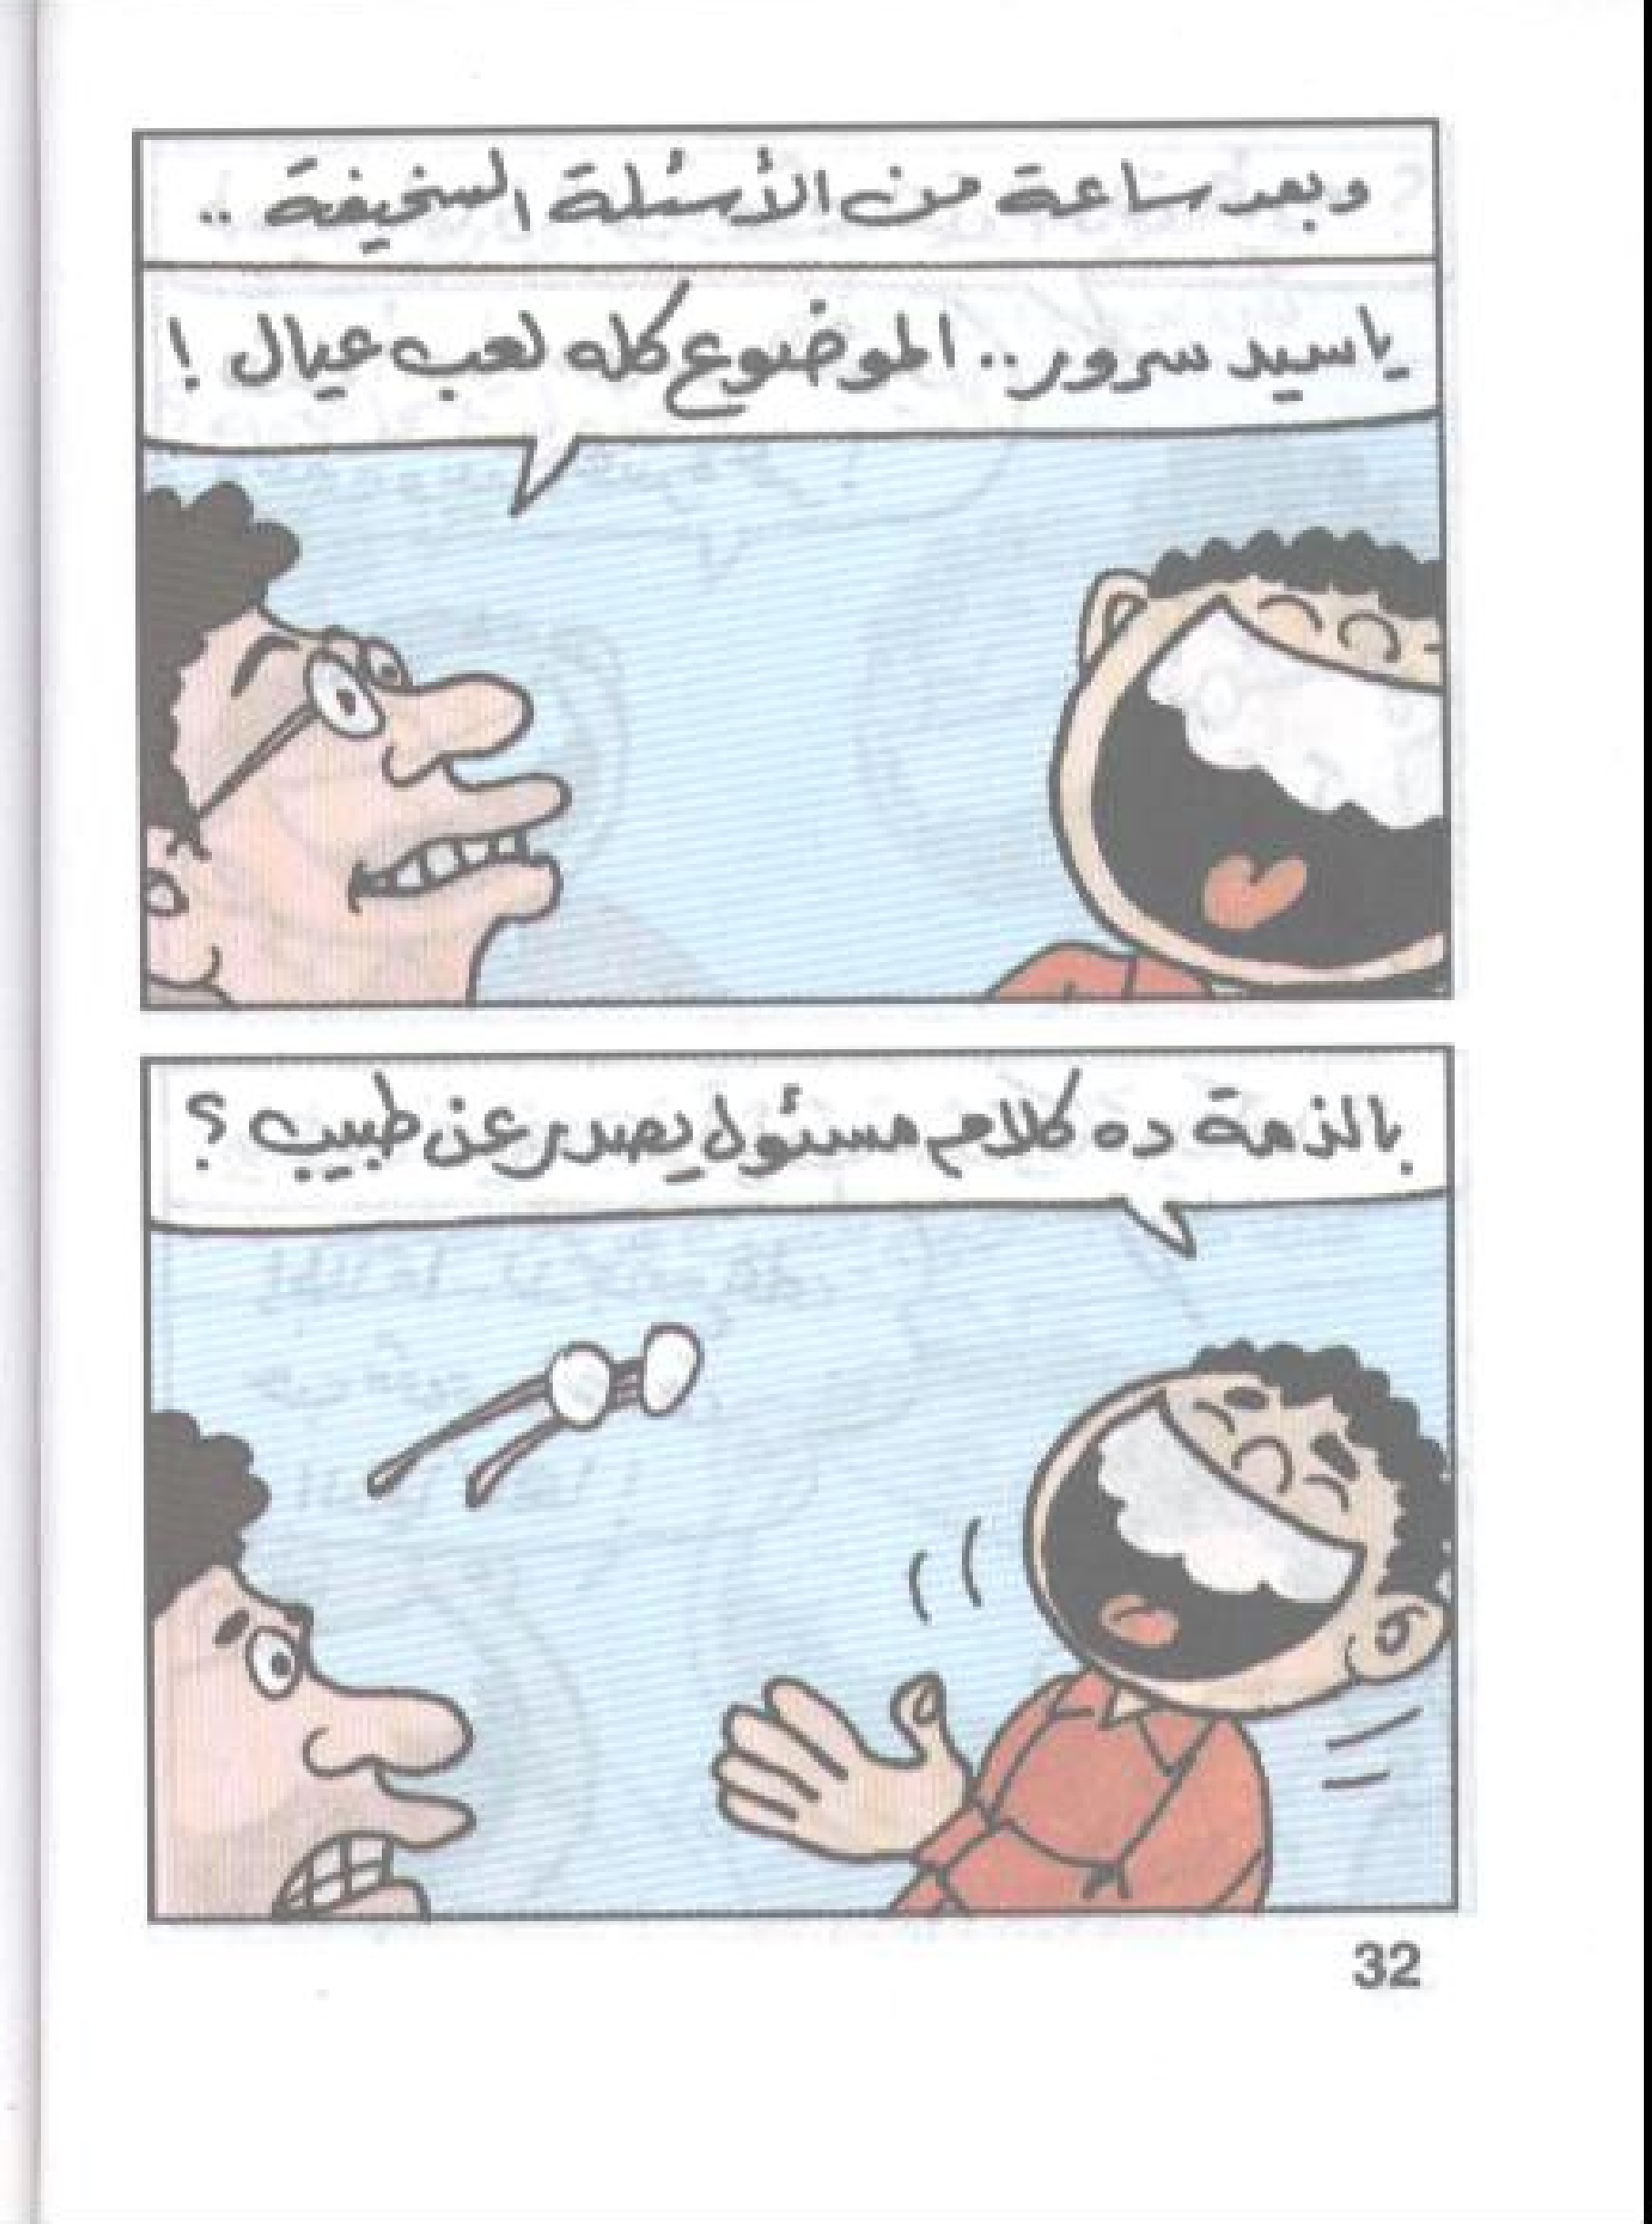 وبعد ساعة من الأسئلة السخيفة ..
ياسيد سرور.. الموضوع كله لعب عيال !
بالذمة ده كلام مسئول يصدر عن طبيب ؟
32